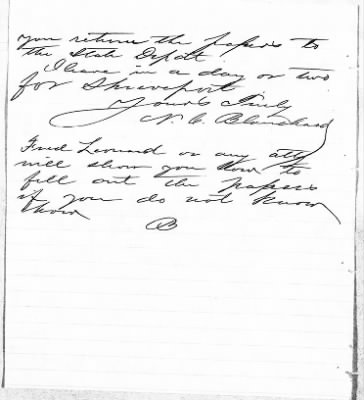 you return the papers to
the State Depot.
I leave in a day or two
for Shreveport
Yours truly
N. C. Blanchard
Fred Leonard or any atty
will show you how to
fill out the papers
if you do not know
how
B